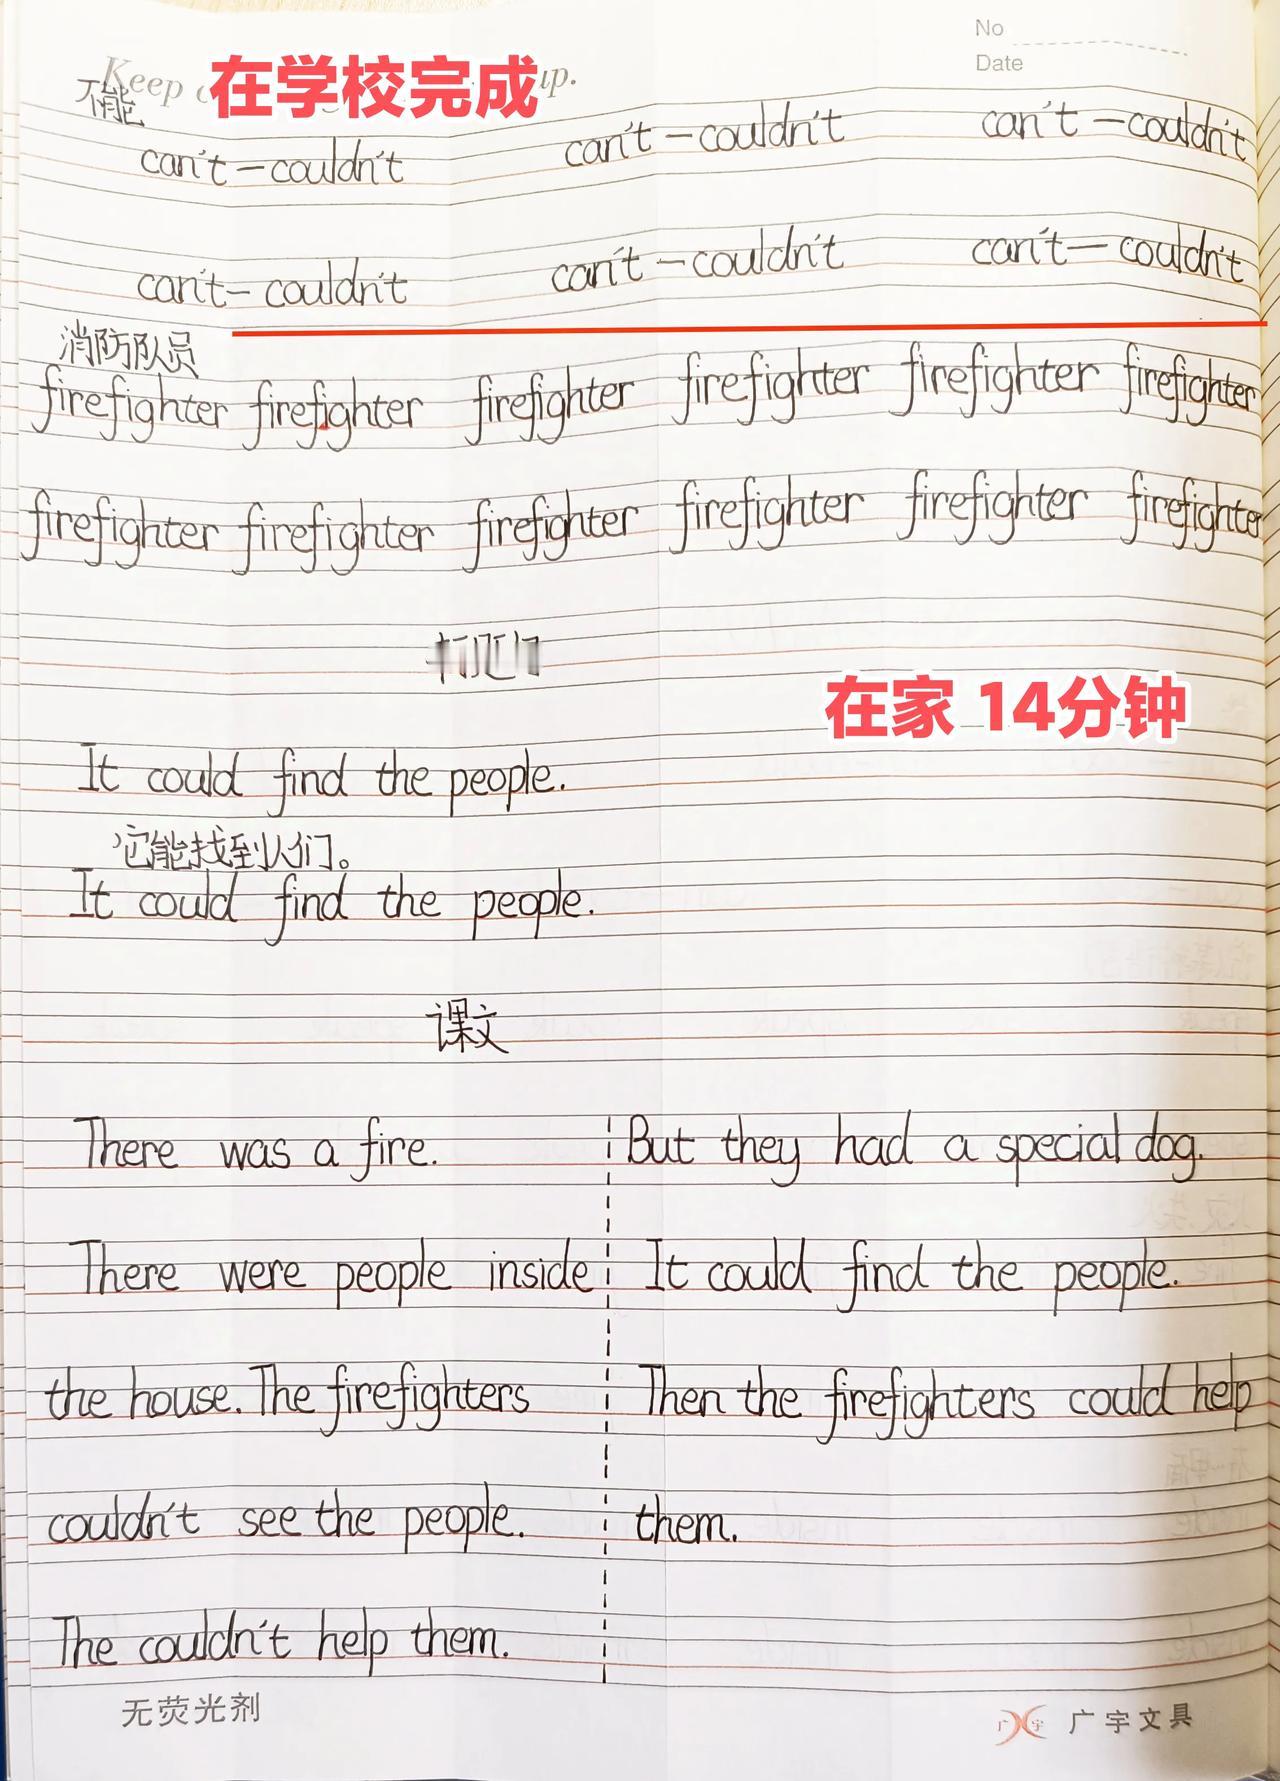 No
Date
Keep
在学校完成
up.
不能
can't-couldn't can't-couldn't can't-couldn't
can't-couldn't can't-couldn't can't-couldn't
消防队员
firefighter firefighter firefighter firefighter firefighter firefighter
firefighter firefighter firefighter firefighter firefighter firefighter
在家 14分钟
It could find the people.
它能找到人们。
It could find the people.
课文
There was a fire.
There were people inside
the house. The firefighters
couldn't see the people.
The couldn't help them.
But they had a special dog.
It could find the people.
Then the firefighters could help
them.
无荧光剂
广宇文具